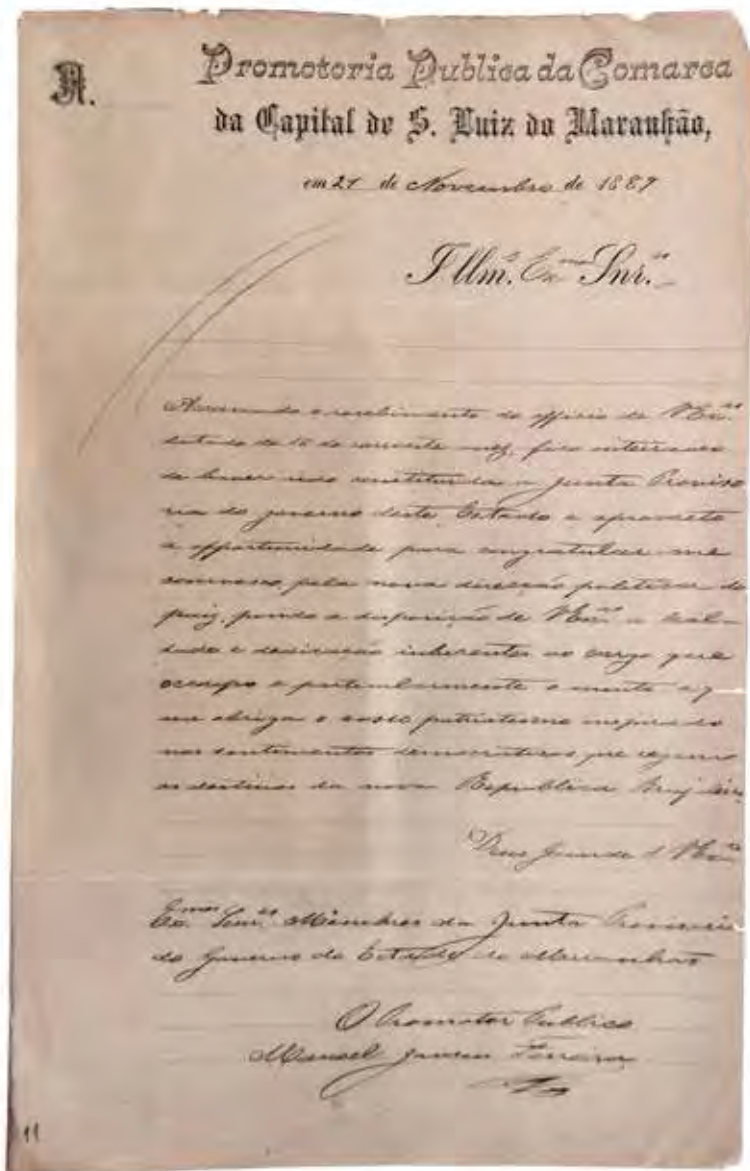 A.
Promotoria Publica da Comarca
da Capital de S. Luiz do Maranhão,
em 21 de Novembro de 1889
Illm.os Ex.mos Snr.es
Accusando o recebimento do officio de V Ex.as
datado de 18 do corrente mez, fico inteirado
de haver sido constituida a Junta Proviso
ria do governo deste Estado e aproveito
a opportunidade para congratular-me
comvosco pela nova direcção politica do
paiz, pondo a disposição de V Ex.as a leal-
dade e dedicação inherentes ao cargo que
occupo e particularmente o
que abriga o vosso patriotismo inspirado
nos sentimentos democraticos que regem
os destinos da nova Republica
Deus Guarde a V Ex.as
Ex.mos Senr.es Membros da Junta Provisoria
do Governo do Estado do Maranhão
O Promotor Publico
Manoel Jansen Ferreira
11